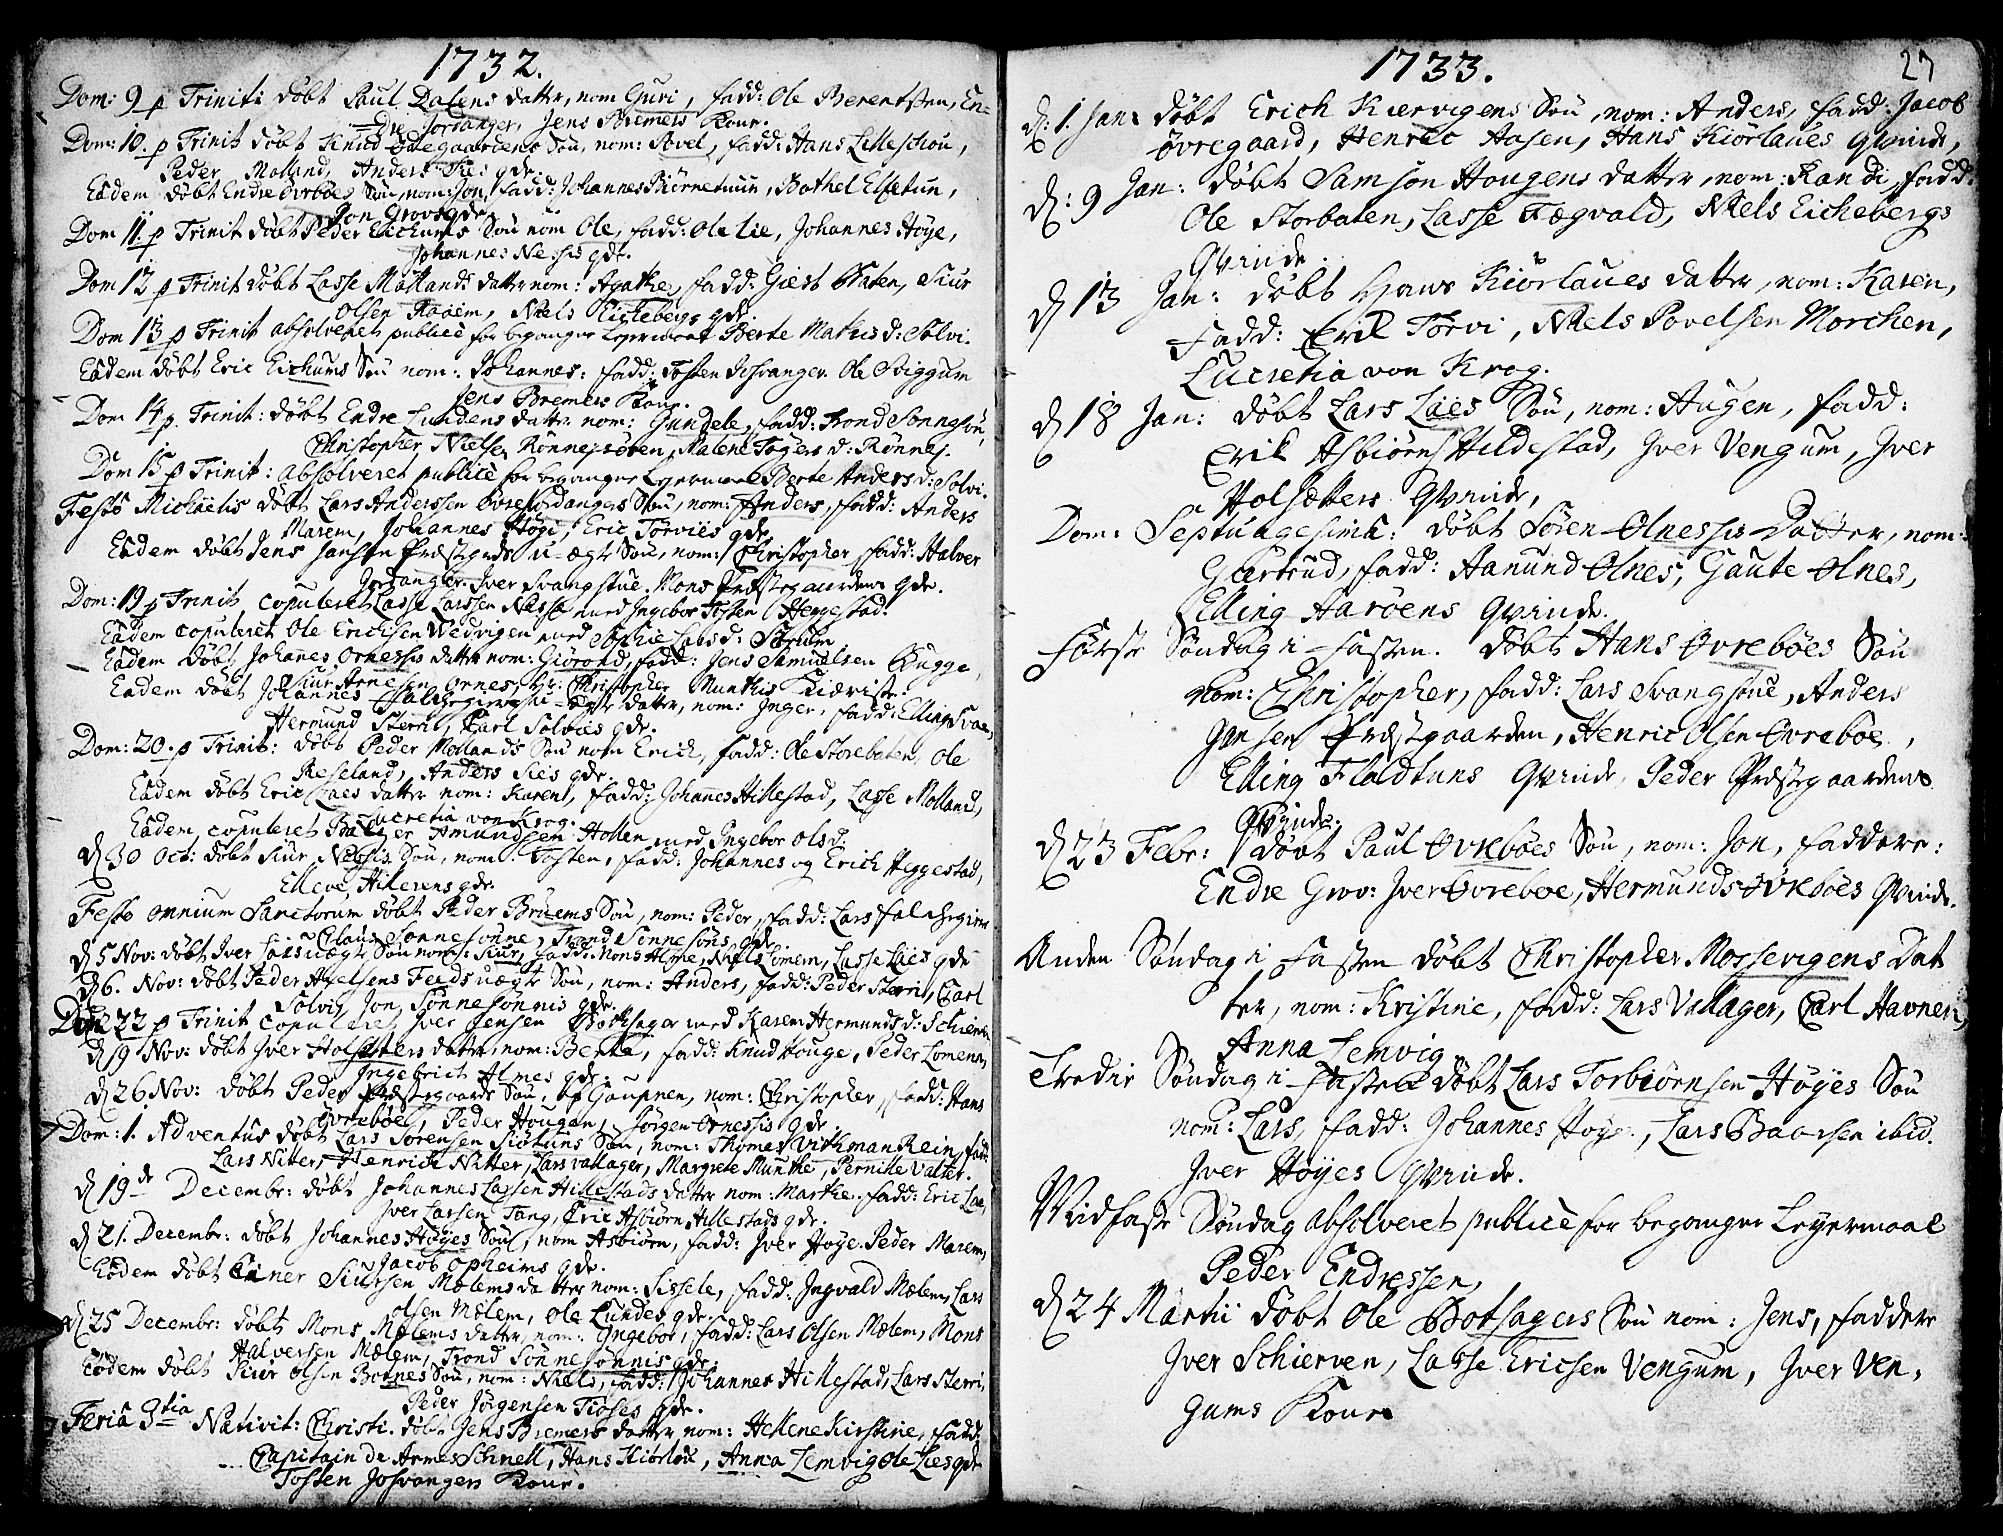 1732.
Dom: 9 p Triniti döbt Paul Dalens datter, nom Guri, fadd: Ole Berentsen, En=
=dre Jorranger, Jens Bremers Kone.
Dom: 10. p Trinit döbt Knud Sön, nom: Povel, fadd: Hans Lilleschou,
Peder Molland, Anders qde.
Eadem döbt Endre Ovrböes Sön, nom: Jon, fadd: Johannes Biörnetuun, Bothel Elsetun,
Jon Groos qde.
Dom 11. p Trinit döbt Peder Eichums Sön nom Ole, fadd: Ole Lie, Johannes Höye,
Johannes Nessis qde.
Dom 12 p Trinit döbt Lasse Mollands datter nom: Agathe, fadd: Giest Baten, Siur
Olsen Naöem, Niels Eichebergs qde.
Dom 13 p Trinit absolveret publicè for begangne Leyermaal Berte Mathis d: Solvi.
Eadem döbt Eric Eichums Sön nom: Johannes: fadd: Tosten Josvanger. Ole Sviggum
Jens Bremers Kone.
Dom 14 p. Trinit: döbt Endre Lundens datter nom: Gundele, fadd: Trond Sönnesön,
Christopher Nielsen Rönneisöven, Malene Tögers d: Rönnej.
Dom 15 p Trinit: absolveret publicè for begangne Leyermaal Berte Anders d: Solvi.
Festo Michäelis döbt Lars Anderssen Ovre Jordangers Sön, nom: Anders, fadd: Anders
Marem, Johannes Högi, Eric Torviis qde.
Eadem döbt Jens Jansen Præstgrds u-ægte Sön, nom: Christopher, fadd: Halver
Jordanger. Iver Svangstue. Mons Præstegaardens qde.
Dom: 19 p Trinit, copuleret Lasse Larssen Nesse med Ingebor Tosten Heggestad.
Eadem copuleret Ole Erichsen Wedvigen med Sophie Lars d:
Eadem döbt Johanes Ornessis datter nom: Giörond, fadd: Jens Samuelsen Bugge,
Siur Arnesen Ornes, Hr: Christopher Munthis Kiæriste.
Eadem döbt Johannes u-ægte datter, nom: Inger, fadd: Elling Svae,
Hermund Sterri, Carl Solvies qde.
Dom: 20. p Trinit: döbt Peder Mollands Sön nom Erich, fadd: Ole Storebaten, Ole
Reseland, Anders Sies qde.
Eadem döbt Eric Laes datter nom: Karen, fadd: Johannes Hillestad, Lasse Molland,
Lucretia von Krog.
Eadem, copuleret Amundsen Hollen med Ingebor Olsd.
D 30 Oct: döbt Siur Nessis Sön, nom: Tosten, fadd: Johannes og Erich Heggestad,
Elleve Hillerens qde.
Festo omnium Sanctorum döbt Peder Bruems Sön, nom: Peder, fadd: Lars Falchegiern
Claus Sonnesonne, Trond Sonnesöns qde.
D 5 Nov: döbt Iver uægte Sön nom: Siur, fadd: Mons Alme, Niels Lomem, Lasse Lies qde
D 6. Nov: döbt Peder Axelsens Feeds uægte Sön, nom: Anders, fadd: Peder Sterri, Carl
Solvi, Jon Sönnesönnis qde.
Dom 22 p Trinit copuleret Iver Jensen Bothsager med Karen Hermunds d: Schierve
D 19 Nov: döbt Iver Holsetters datter, nom: Berta, fadd: Knud Houge, Peder Lomen,
Ingebrich Almes qde.
D 26 Nov: döbt Peder Præstegaards Sön, af Gaupnen, nom: Christopher, fadd: Hans
Ovreböe, Peder Hougen, Jörgen Ornessis qde.
Dom: 1. Adventus döbt Lars Sorensen Siötuns Sön, nom: Thomas Wirkman Rein, fadd:
Lars Nitter, Henrich Nitter, Lars Vallager, Margrete Munthe, Pernille Valter.
D 19de Decembr: döbt Johannes Lassen Hillestads datter nom: Marthe. fadd: Eric Lae,
Iver Larsen Tang, Eric Asbiörn Hillestads qde.
D 21. Decembr: döbt Johannes Höyes Sön, nom Asbiörn, fadd: Iver Höye. Peder Marem,
Jacob Opheims qde.
Eodem döbt Einer Siursen Mælems datter nom: Sissele, fadd: Ingvald Mælem, Lars
Olsen Mælem, Ole Lundes qde.
D 25 Decembr: döbt Mons Mælems datter, nom: Ingebor, fadd: Lars Olsen Mælem, Mons
Halversen Mælem, Trond Sönnesönnis qde.
Eodem döbt Siur Olsen Botnes Sön, nom: Niels, fadd: Johannes Hillestad, Lars Sterri,
Peder Jörgensen Fiöses qde.
Feriâ 3tia Nativit: Christi. döbt Jens Bremers datter, nom: Hellene Kirstine, fadd:
Capitain de Armes Schnell, Hans Kiörlou, Anna Lemvig Ole Lies qde
Tosten Josvangers Kone.
1733.
27
D: 1. Jan: döbt Erich Kiervigens Sön, nom: Anders, fadd: Jacob
Ovregaard, Henric Aasen, Hans Kiörlaues Qvinde,
D: 9 Jan: döbt Samson Hougens datter, nom: Randi, fadd:
Ole Storbaten, Lasse Fægvald, Niels Eichebergs
Qvinde.
D 13 Jan: döbt Hans Kiörlaues datter, nom: Karen,
Fadd: Erik Torvi, Niels Povelsen Morchen,
Lucretia von Krog.
D 18 Jan: döbt Lars Laes Sön, nom: Augen, fadd:
Erik Asbiörns Hildestad, Iver Vengum, Iver
Holsetters Qvinde,
Dom: Septuagesima: döbt Sören Olnessis Datter, nom:
Giertrud, fadd: Aanund Olnes, Gaute Olnes,
Elling Aaröens Qvinde.
Förste Söndag i Fasten. döbt Hans Ovreböes Sön
nom: Christopher, fadd: Lars Svangstue, Anders
Jensen Præstgaarden, Henric Olsen Ovreböe,
Elling Fladtuns Qvinde, Peder Præstgaardens
Qvinde.
D 23 Febr: döbt Paul Ovreböes Sön, nom: Jon, faddere:
Endre Grov: Iver Ovreböe, Hermunds Ovreböes Qvinde.
Anden Söndag i Fasten döbt Christopher Mossevigens Dat
ter, nom: Kristine, fadd: Lars Vallager, Carl Havnen,
Anna Lemvig
Tredie Söndag i Fasten döbt Lars Torbiörnsen Höyes Sön
nom: Lars, fadd: Johannes Höye, Lars Baarsen ibid.
Iver Höyes Qvinde.
Midfaste Söndag absolveret publicè for begangne Leyermaal
Peder Endressen,
D 24 Martii döbt Ole Botsagers Sön nom: Jens, faddere
Iver Schierven, Lasse Ericsen Vengum, Iver Ven-
gums Kone